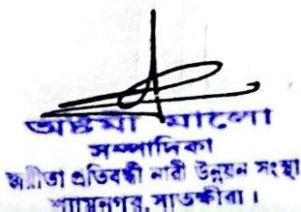 অষ্টমী মালো
সম্পাদিকা
প্রতিবন্ধী নারী উন্নয়ন সংস্থা
শ্যামনগর, সাতক্ষীরা।